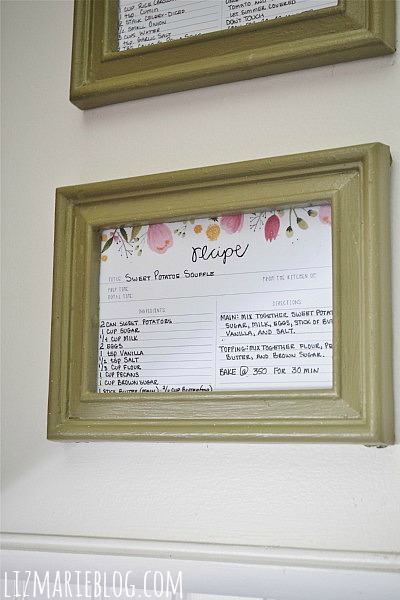 CUP RICE
1 TSP. CUMIN
2 STALK CELERY-DICED
1/2 SMALL ONION
CUPS WATER
TSP. GARLIC SALT
TOMATO AND
LET SIMMER COVERED
DON'T TOUCH
recipe
TITLE: SWEET POTATOE SOUFFLE
FROM THE KITCHEN OF:
PREP TIME:
TOTAL TIME:
INGREDIENTS:
2 CAN SWEET POTATOES
1 CUP SUGAR
1/4 CUP MILK
2 EGGS
1 TSP VANILLA
1/2 TSP SALT
1/3 CUP FLOUR
1 CUP PECANS
1 CUP BROWN SUGAR
1 STICK BUTTER (MAIN)
DIRECTIONS:
MAIN: MIX TOGETHER SWEET POTAT
SUGAR, MILK, EGGS, STICK OF BU
VANILLA, AND SALT.
TOPPING: MIX TOGETHER FLOUR, PE
BUTTER, AND BROWN SUGAR.
BAKE @ 350 FOR 30 MIN
LIZMARIEBLOG.COM